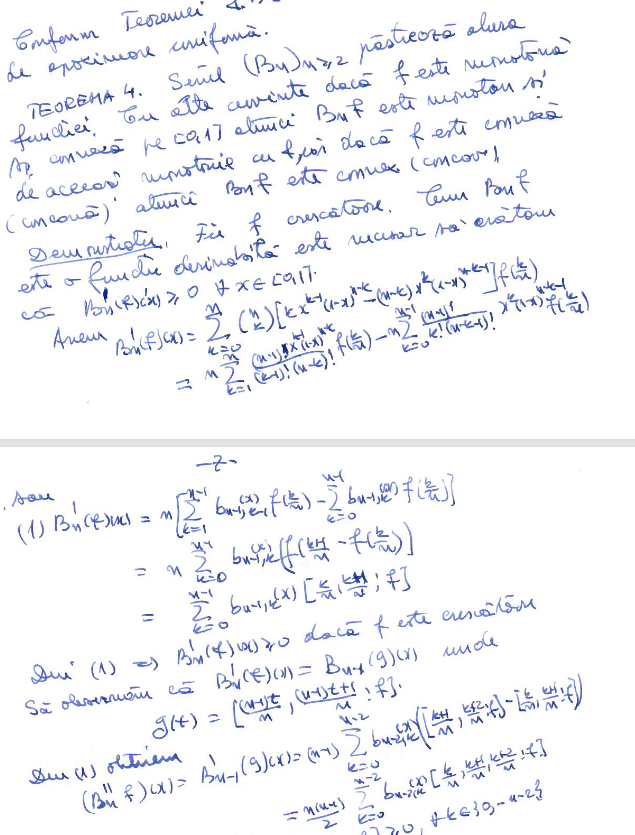 Conform Teoremei
de aproximare uniformă.
TEOREMA 4. Șirul (Bn)n≥2 păstrează alura
funcției. Cu alte cuvinte dacă f este monotonă
convexă pe [0,1] atunci Bnf este monoton și
de aceeași monotonie cu f, dacă f este convexă
(concavă) atunci Bnf este convex (concav).
Demonstrație. Fie f crescătoare. Cum Bnf
este o funcție derivabilă este necesar să arătăm
că B'n(f)(x) ≥ 0 ∀ x ∈ [0,1].
Avem B'n(f)(x) = Σ_{k=0}^{n} (n k) [k x^{k-1}(1-x)^{n-k} - (n-k) x^k (1-x)^{n-k-1}] f(k/n)
= n Σ_{k=1}^{n} (n-1)! x^{k-1}(1-x)^{n-k} / (k-1)!(n-k)! f(k/n) - n Σ_{k=0}^{n-1} (n-1)! / k!(n-k-1)! x^k (1-x)^{n-k-1} f(k/n)
-7-
sau
(1) B'n(f)(x) = n [Σ_{k=1}^{n-1} b_{n-1,k-1}(x) f(k/n) - Σ_{k=0}^{n-1} b_{n-1,k}(x) f(k/n)]
= n Σ_{k=0}^{n-1} b_{n-1,k}(x) (f(k+1/n - f(k/n))]
= Σ_{k=0}^{n-1} b_{n-1,k}(x) [k/n, k+1/n ; f]
Din (1) => B'n(f)(x) ≥ 0 dacă f este crescătoare
Să observăm că B'n(f)(x) = B_{n-1}(g)(x) unde
g(t) = [(n-1)t/n, (n-1)t+1/n ; f].
Din (1) obținem
(B''n f)(x) = B'_{n-1}(g)(x) = (n-1) Σ_{k=0}^{n-2} b_{n-2,k}(x) ([k+1/n, k+2/n ; f] - [k/n, k+1/n ; f])
= n(n-1)/2 Σ_{k=0}^{n-2} b_{n-2,k}(x) [k/n, k+1/n, k+2/n ; f]
≥ 0, ∀ k ∈ {0 - n-2}